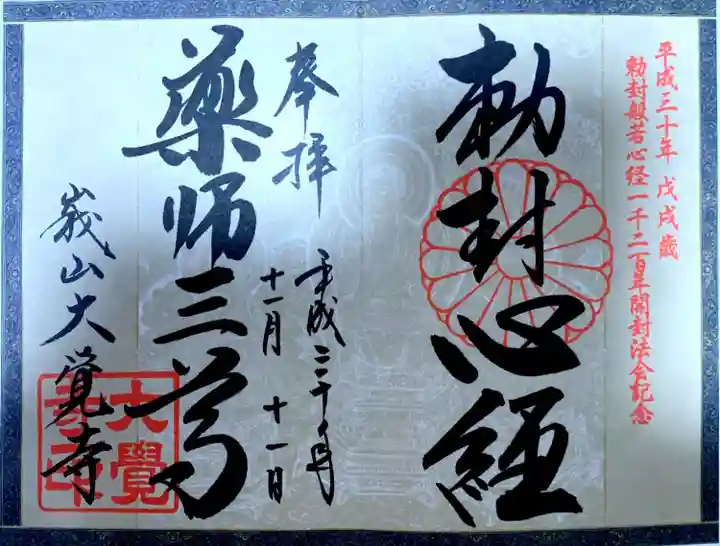 平成三十年 戊戌歳
勅封般若心経一千二百年開封法会記念
勅封心経
奉拝
平成三十年
十一月 十一日
薬師三尊
嵯峨山大覺寺
大覺
寺印